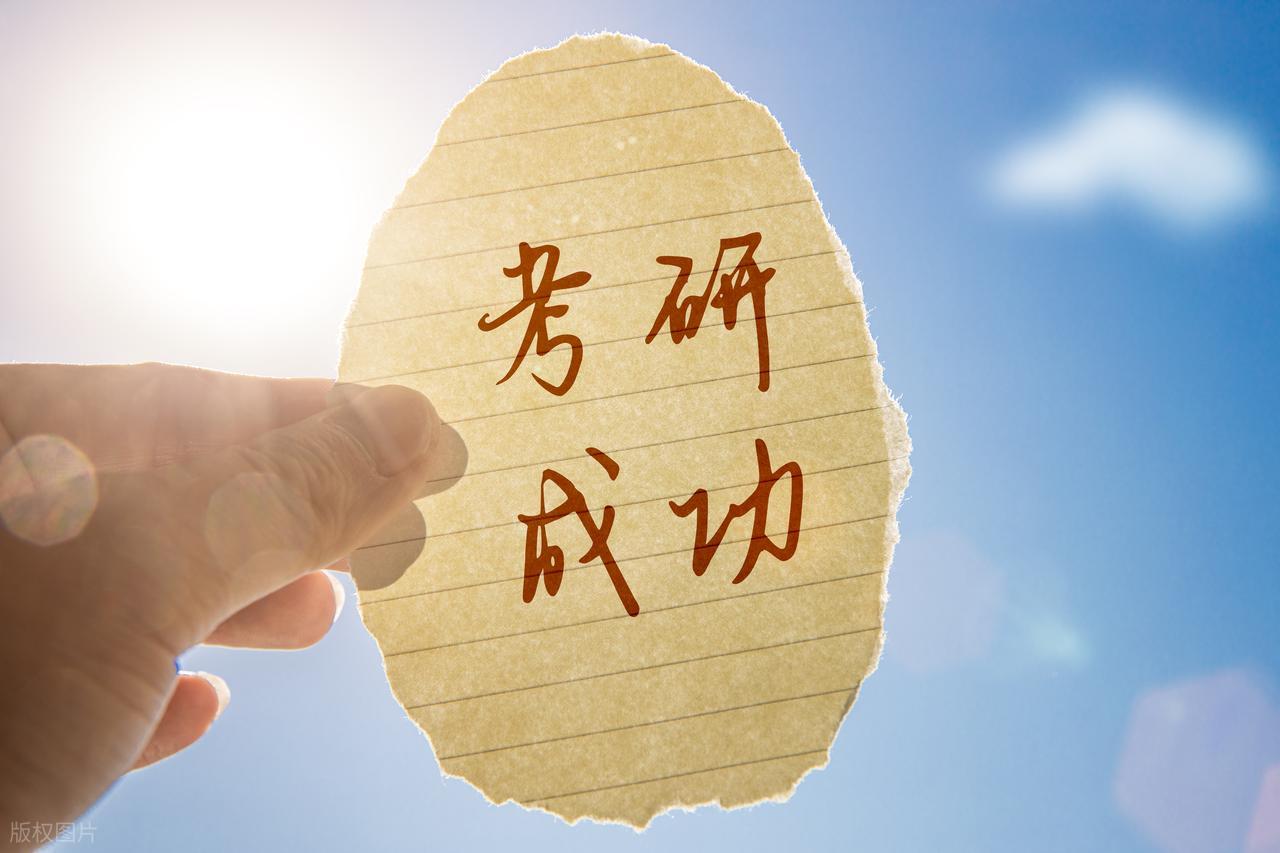 考研
成功
版权图片